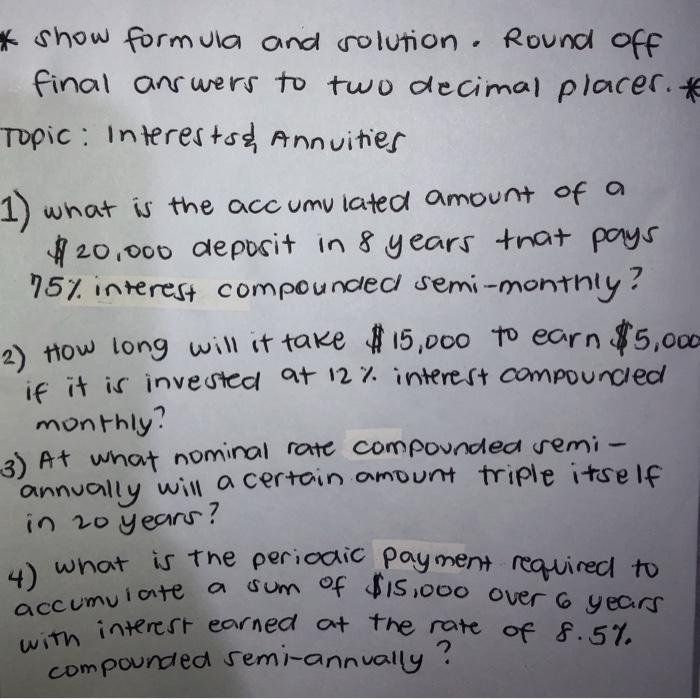 * show formula and solution. Round off
final answers to two decimal places. *
Topic: Interests & Annuities
1) what is the accumulated amount of a
$20,000 deposit in 8 years that pays
75% interest compounded semi-monthly?
2) How long will it take $15,000 to earn $5,000
if it is invested at 12% interest compounded
monthly?
3) At what nominal rate compounded semi-
annually will a certain amount triple itself
in 20 years?
4) what is the periodic payment required to
accumulate a sum of $15,000 over 6 years
with interest earned at the rate of 8.5%
compounded semi-annually?